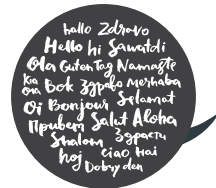 hallo Zdravo
Hello hi Sawatdi
Ola Guten Tag Namaste
Kia Ora Bok Здраво Merhaba
Oi Bonjour Selamat
Привет Salut Aloha
Shalom Здрасти
hoj ciao hai
Dobry den